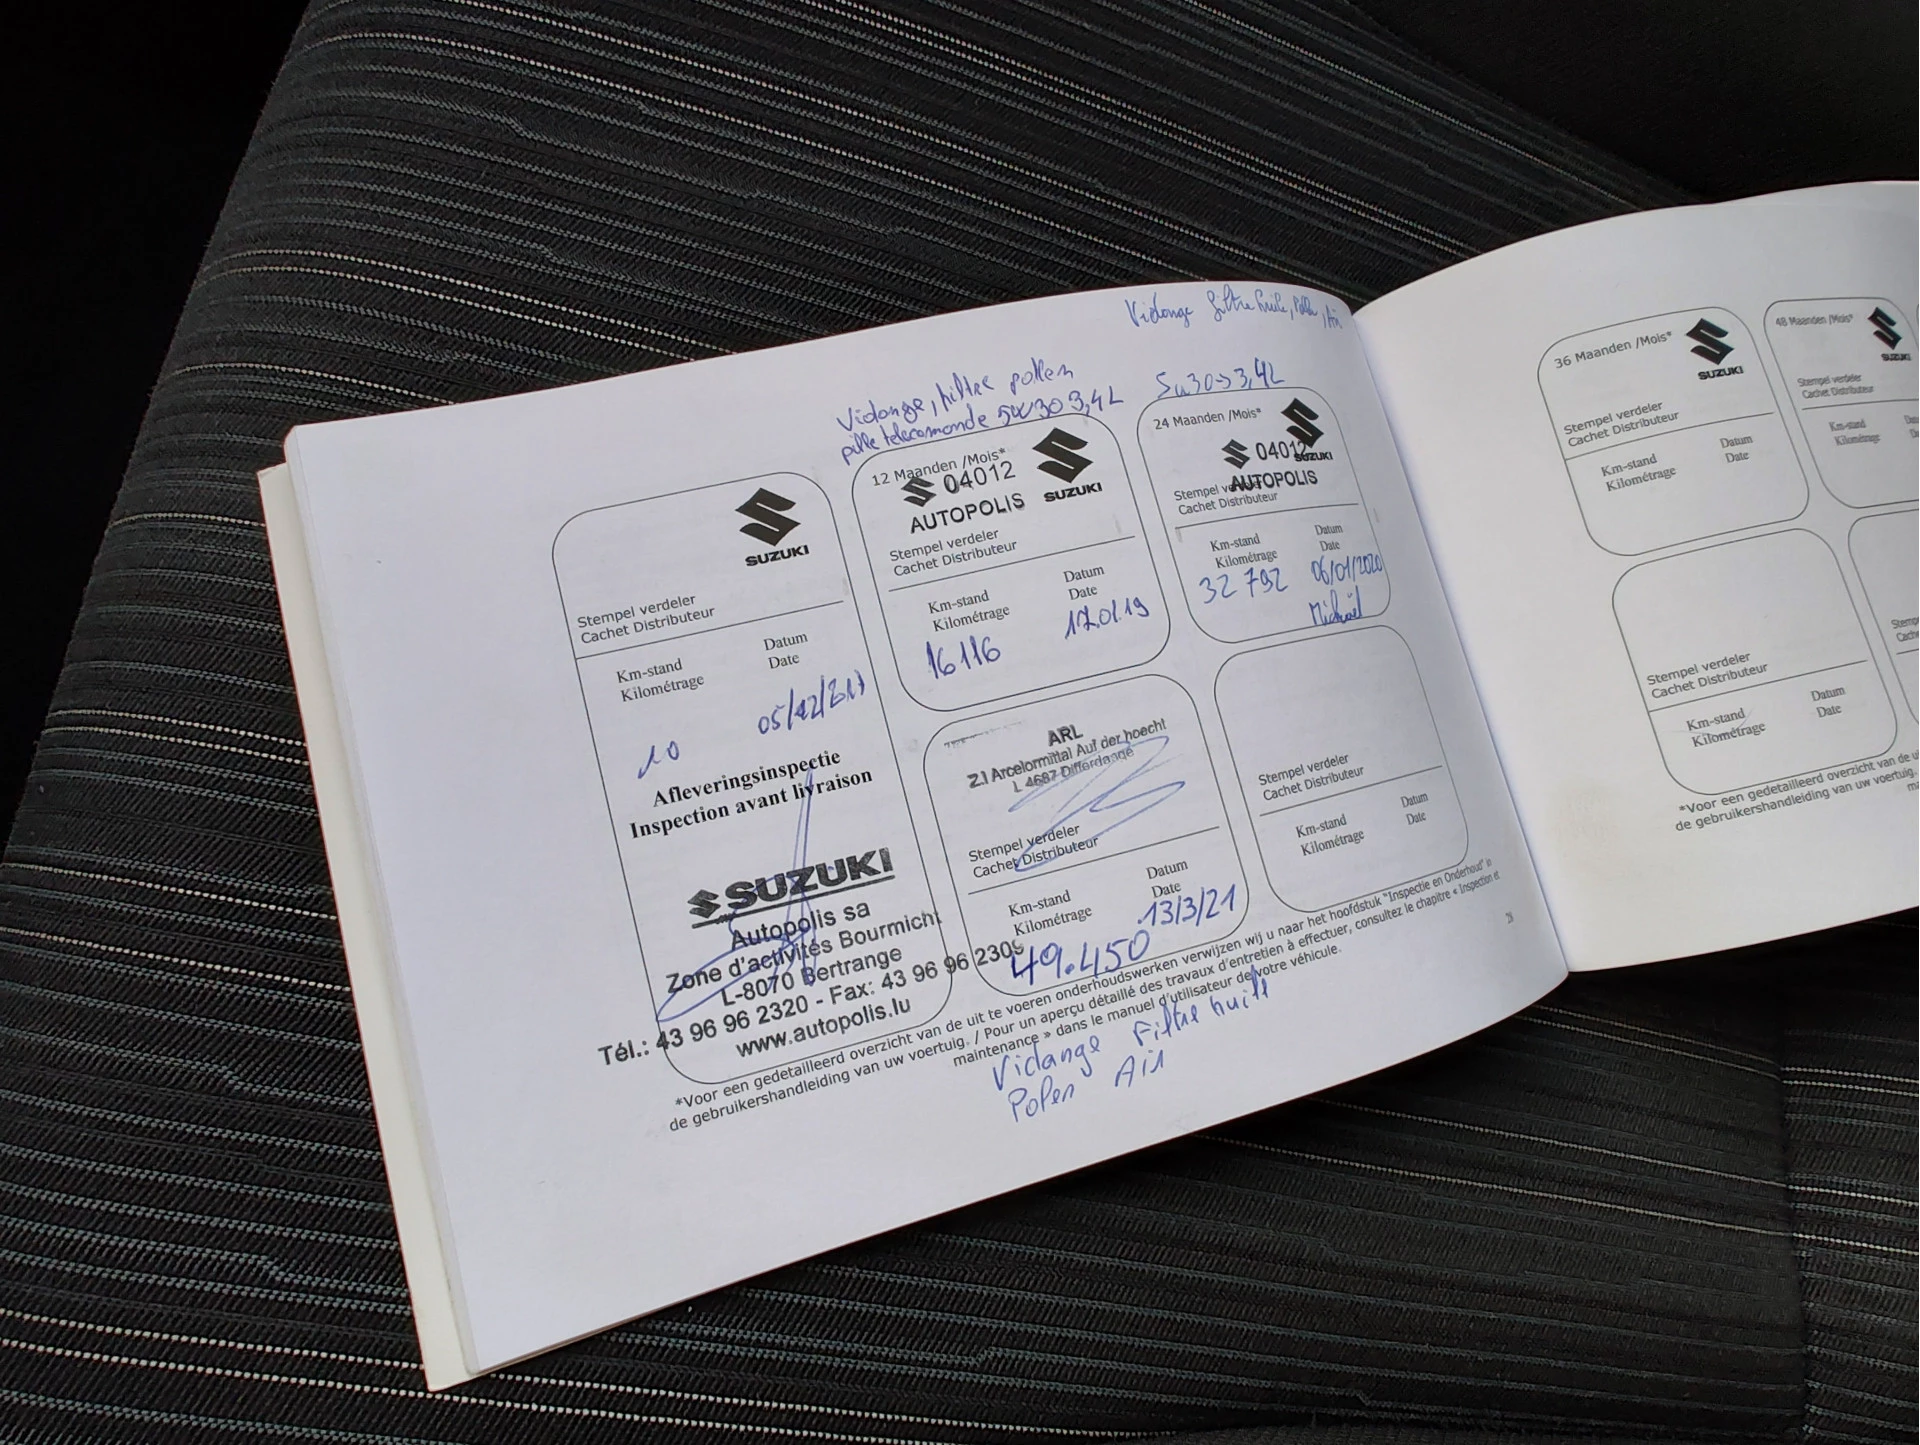 SUZUKI
Stempel verdeler
Cachet Distributeur
Km-stand
Kilométrage
Datum
Date
10
05/12/2017
Afleveringsinspectie
Inspection avant livraison
SUZUKI
Autopolis sa
Zone d'activités Bourmicht
L-8070 Bertrange
Tél.: 43 96 96 2320 - Fax: 43 96 96 2309
www.autopolis.lu
Vidange, filtre pollen
pille telecomande 5W30 3,4L
12 Maanden /Mois*
04012
AUTOPOLIS
SUZUKI
Stempel verdeler
Cachet Distributeur
Km-stand
Kilométrage
Datum
Date
16116
17.01.19
Vidange filtre huile,
5W30 3,4L
24 Maanden /Mois*
04012
SUZUKI
AUTOPOLIS
Stempel verdeler
Cachet Distributeur
Km-stand
Kilométrage
Datum
Date
32 792
06/01/2020
Michaël
ARL
Z.I Arcelormittal Auf der hoecht
L 4687 Differdange
Stempel verdeler
Cachet Distributeur
Km-stand
Kilométrage
Datum
Date
49.450
13/3/21
Stempel verdeler
Cachet Distributeur
Km-stand
Kilométrage
Datum
Date
*Voor een gedetailleerd overzicht van de uit te voeren onderhoudswerken verwijzen wij u naar het hoofdstuk "Inspectie en Onderhoud" in
de gebruikershandleiding van uw voertuig. / Pour un aperçu détaillé des travaux d'entretien à effectuer, consultez le chapitre « Inspection et
maintenance » dans le manuel d'utilisateur de votre véhicule.
Vidange Filtre huile
Polen Air
36 Maanden /Mois*
SUZUKI
Stempel verdeler
Cachet Distributeur
Km-stand
Kilométrage
Datum
Date
48 Maanden /Mois*
SUZUKI
Stempel verdeler
Cachet Distributeur
Km-stand
Kilométrage
Stempel verdeler
Cachet Distributeur
Km-stand
Kilométrage
Datum
Date
*Voor een gedetailleerd overzicht van de
de gebruikershandleiding van uw voertuig.